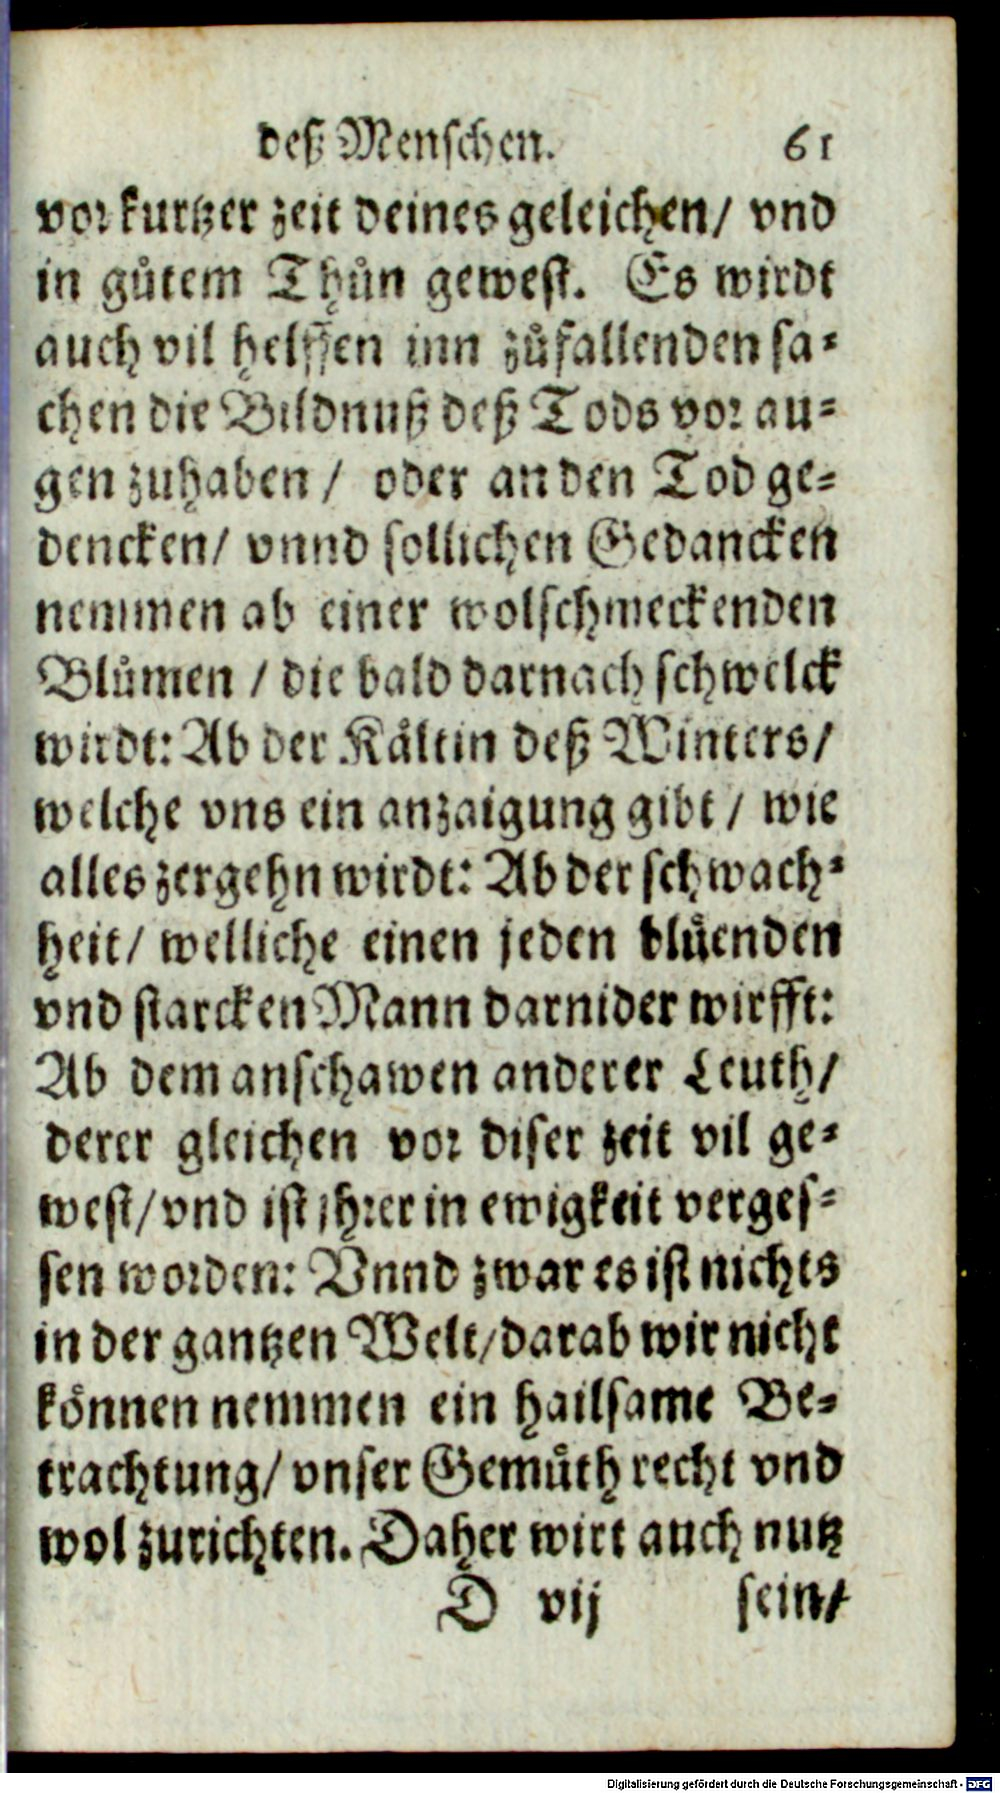 deß Menschen. 61
vor kurtzer zeit deines geleichen/ vnd
in gůtem Thůn gewest. Es wirdt
auch vil helffen inn zůfallenden sa⸗
chen die Bildnuß deß Tods vor au⸗
gen zuhaben / oder an den Tod ge⸗
dencken/ vnnd sollichen Gedancken
nemmen ab einer wolschmeckenden
Blůmen / die bald darnach schwelck
wirdt: Ab der Kåltin deß Winters/
welche vns ein anzaigung gibt / wie
alles zergehn wirdt: Ab der schwach⸗
heit/ welliche einen jeden blůenden
vnd starcken Mann darnider wirfft:
Ab dem anschawen anderer Leuth/
derer gleichen vor diser zeit vil ge⸗
west/ vnd ist jhrer in ewigkeit verges⸗
sen worden: Vnnd zwar es ist nichts
in der gantzen Welt/ darab wir nicht
können nemmen ein hailsame Be⸗
trachtung/ vnser Gemůth recht vnd
wol zurichten. Daher wirt auch nutz
D vij sein/
Digitalisierung gefördert durch die Deutsche Forschungsgemeinschaft - DFG